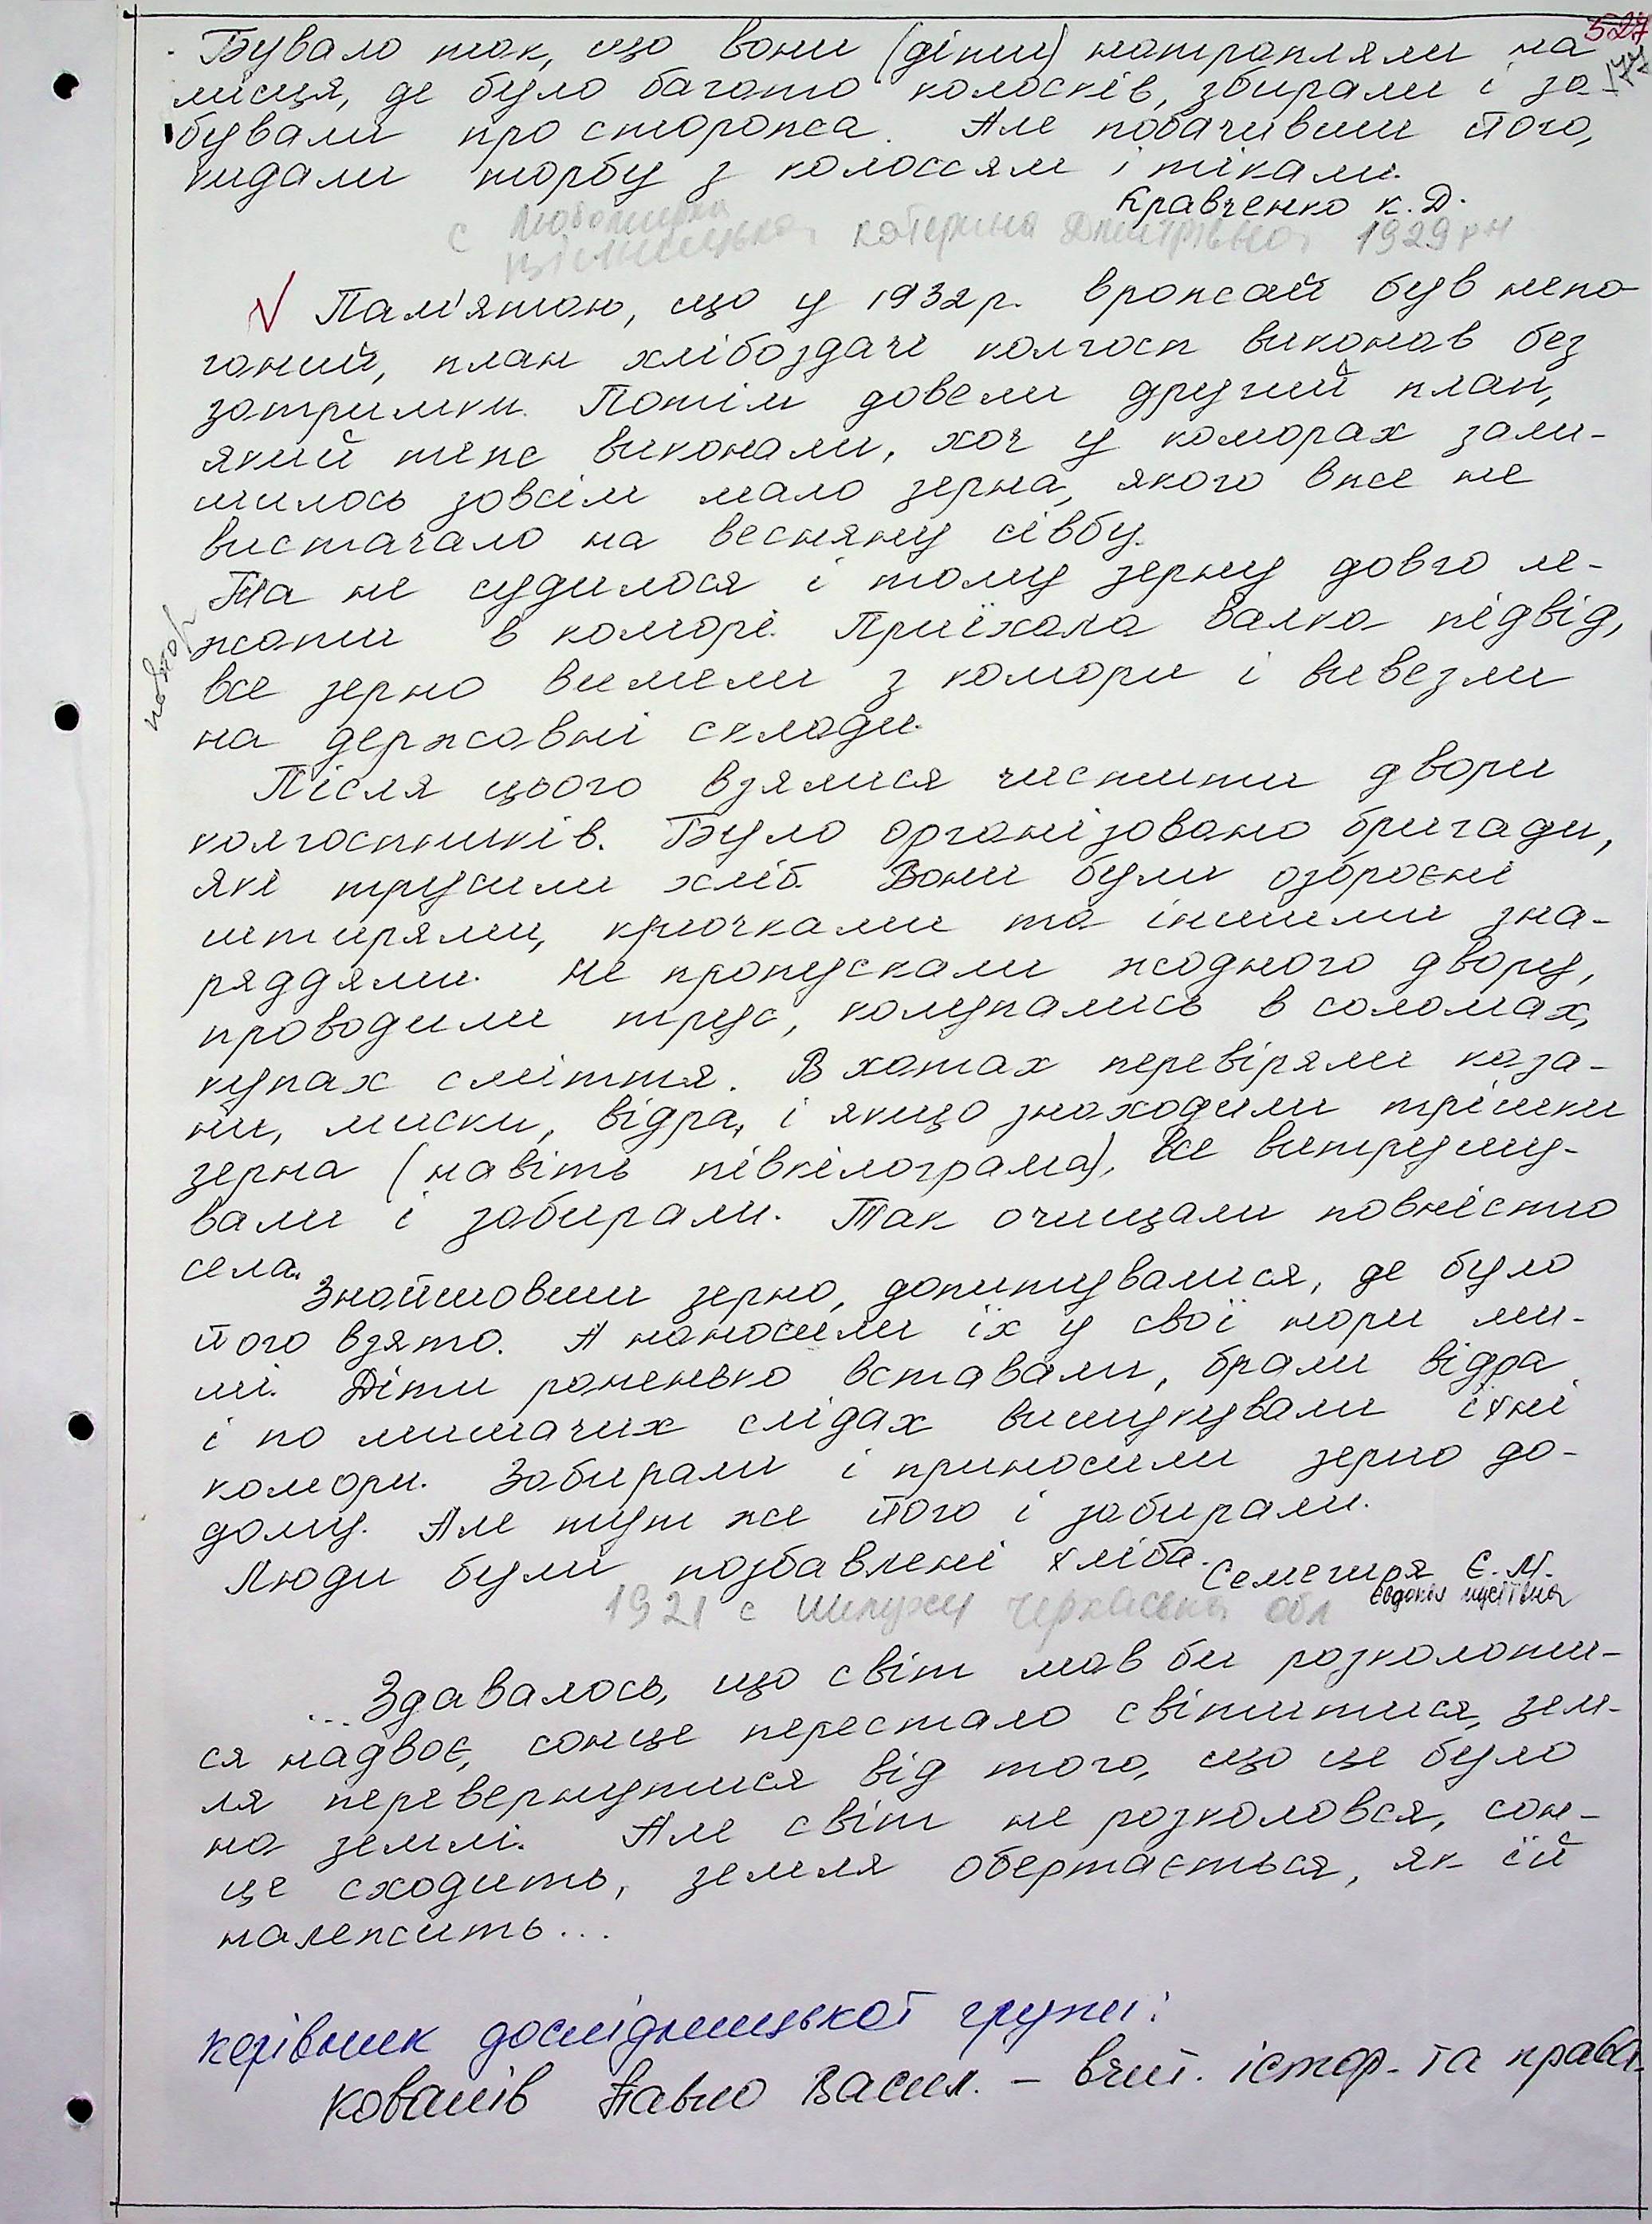 527
177
Бувало так, що вони (діти) натрапляли на
місця, де було багато колосків, збирали і за-
бували про сторожа. Але побачивши його,
кидали торбу з колоссям і тікали.
Кравченко К. Д.
с Любомирка
Катерина Дмитрівна 1929 р н
√ Пам'ятаю, що у 1932 р. врожай був непо-
ганий, план хлібоздачі колгосп виконав без
затримки. Потім довели другий план,
який теж виконали, хоч у коморах зали-
шилось зовсім мало зерна, якого вже не
вистачало на весняну сівбу.
Та не судилося і тому зерну довго ле-
жати в коморі. Приїхала валка підвід,
все зерно вимели з комори і вивезли
на державні склади.
повтор
Після цього взялися чистити двори
колгоспників. Було організовано бригади,
які трусили хліб. Вони були озброєні
штирями, крючками та іншими зна-
ряддями. Не пропускали жодного двору,
проводили трус, колупались в соломах,
купах сміття. В хатах перевіряли каза-
ни, миски, відра, і якщо знаходили трішки
зерна (навіть півкілограма), все витрушу-
вали і забирали. Так очищали повністю
села.
Знайшовши зерно, допитувалися, де було
його взято. А наносили їх у свої нори ми-
ші. Діти раненько вставали, брали відра
і по мишачих слідах вишукували їхні
комори. Забирали і приносили зерно до-
дому. Але тут же його і забирали.
Люди були позбавлені хліба.
Семегиря Є. М.
Євдокія Мусіївна
1921 с Шпужи Черкаська обл
...Здавалось, що світ мав би розколоти-
ся надвоє, сонце перестало світитися, зем-
ля перевернутися від того, що це було
на землі. Але світ не розколовся, сон-
це сходить, земля обертається, як їй
належить...
керівник дослідницької групи:
Ковалів Павло Васил. – вчит. істор. та права